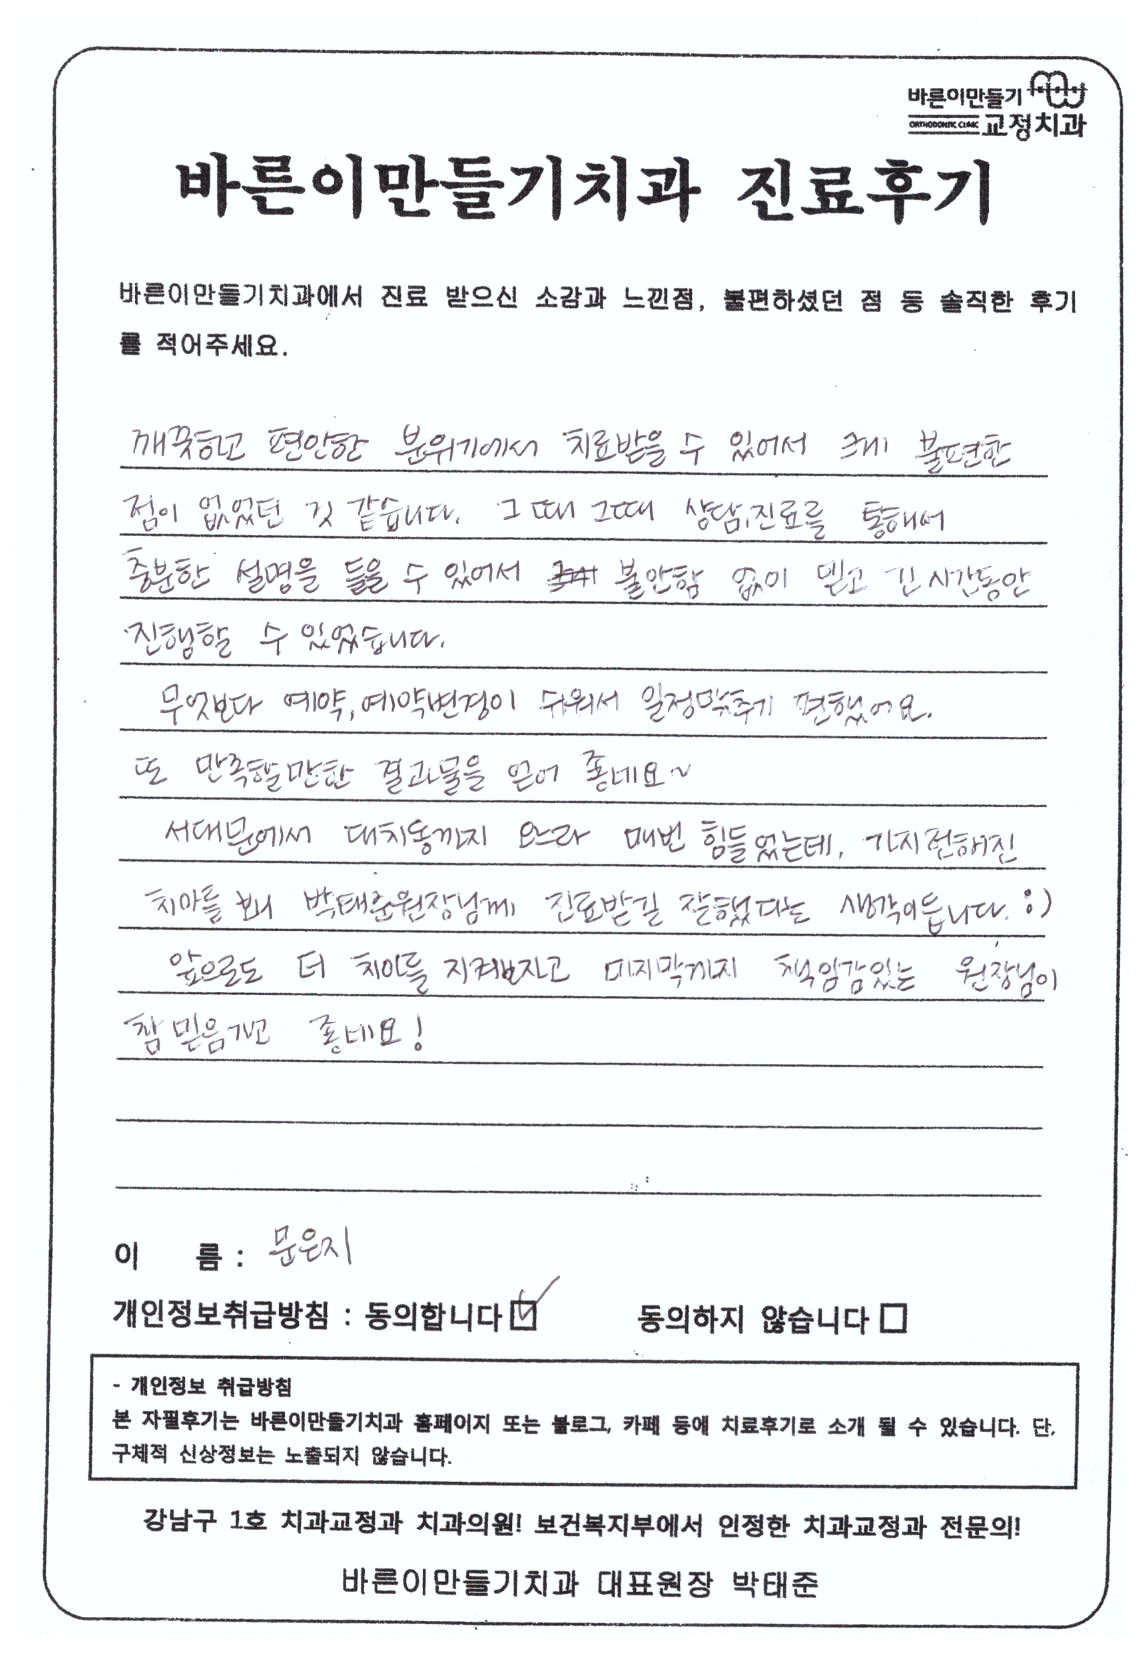 바른이만들기
ORTHODONTIC CLINIC 교정치과
바른이만들기치과 진료후기
바른이만들기치과에서 진료 받으신 소감과 느낀점, 불편하셨던 점 등 솔직한 후기
를 적어주세요.
깨끗하고 편안한 분위기에서 치료받을 수 있어서 크게 불편한
점이 없었던 것 같습니다. 그때 그때 상담,진료를 통해서
충분한 설명을 들을 수 있어서 불안함 없이 믿고 긴 시간동안
진행할 수 있었습니다.
무엇보다 예약,예약변경이 쉬워서 일정맞추기 편했어요.
또 만족할만한 결과물을 얻어 좋네요~
서대문에서 대치동까지 오느라 매번 힘들었는데, 가지런해진
치아를 봬 박태준원장님께 진료받길 잘했다는 생각이듭니다. :)
앞으로도 더 치아를 지켜보자고 마지막까지 책임감있는 원장님이
참 믿음가고 좋네요!
이 름 : 문은지
개인정보취급방침 : 동의합니다 ☑ 동의하지 않습니다 ☐
- 개인정보 취급방침
본 자필후기는 바른이만들기치과 홈페이지 또는 블로그, 카페 등에 치료후기로 소개 될 수 있습니다. 단,
구체적 신상정보는 노출되지 않습니다.
강남구 1호 치과교정과 치과의원! 보건복지부에서 인정한 치과교정과 전문의!
바른이만들기치과 대표원장 박태준